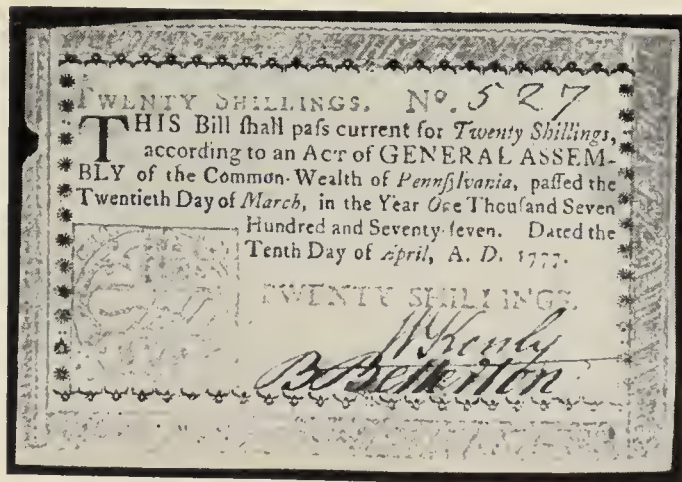 TWENTY SHILLINGS. No. 527
THIS Bill ſhall paſs current for Twenty Shillings,
according to an Act of GENERAL ASSEM-
BLY of the Common-Wealth of Pennſylvania, paſſed the
Twentieth Day of March, in the Year One Thouſand Seven
Hundred and Seventy-ſeven. Dated the
Tenth Day of April, A. D. 1777.
TWENTY SHILLINGS.
W Kenly
B Betterton